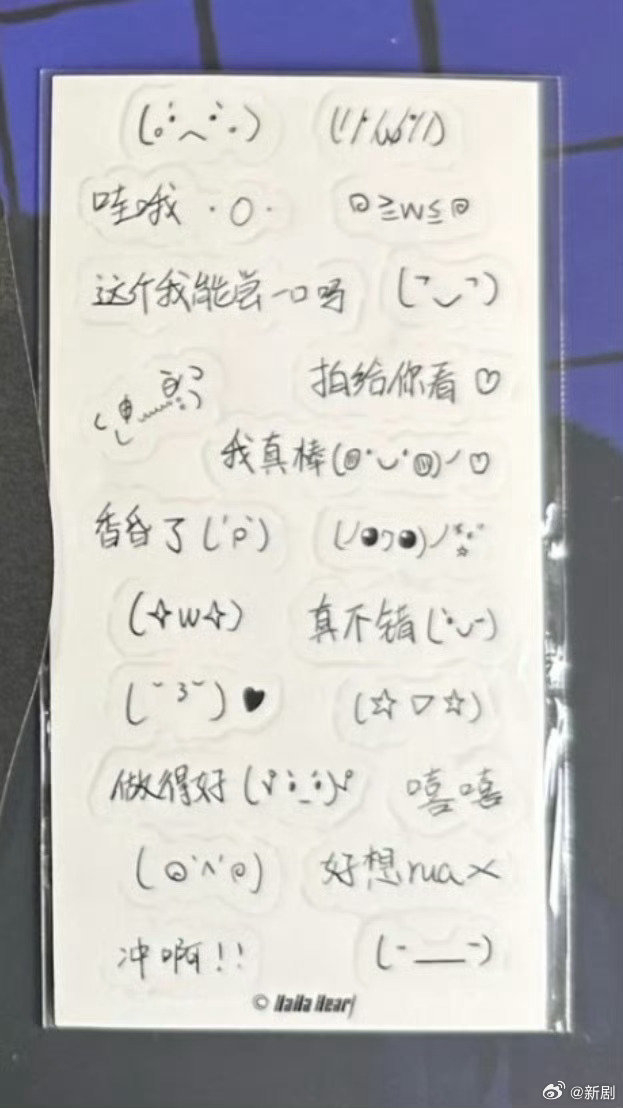 (｡·́︿·̀｡) (//ω//)
哇哦 ·O·
@≥w≤@
这个我能尝一口吗 (˘‿˘)
拍给你看♡
我真棒(@·‿·@)ノ♡
香昏了(´ρ`)
(ノ◕ヮ◕)ノ*:☆
(✧w✧)
真不错(·‿-)
(˘³˘)♥
(☆▽☆)
做得好(ง·̀_·́)ง
嘻嘻
(@·^·@)
好想rua×
冲啊!!
(-__-)
© HaHa Heart
@新剧